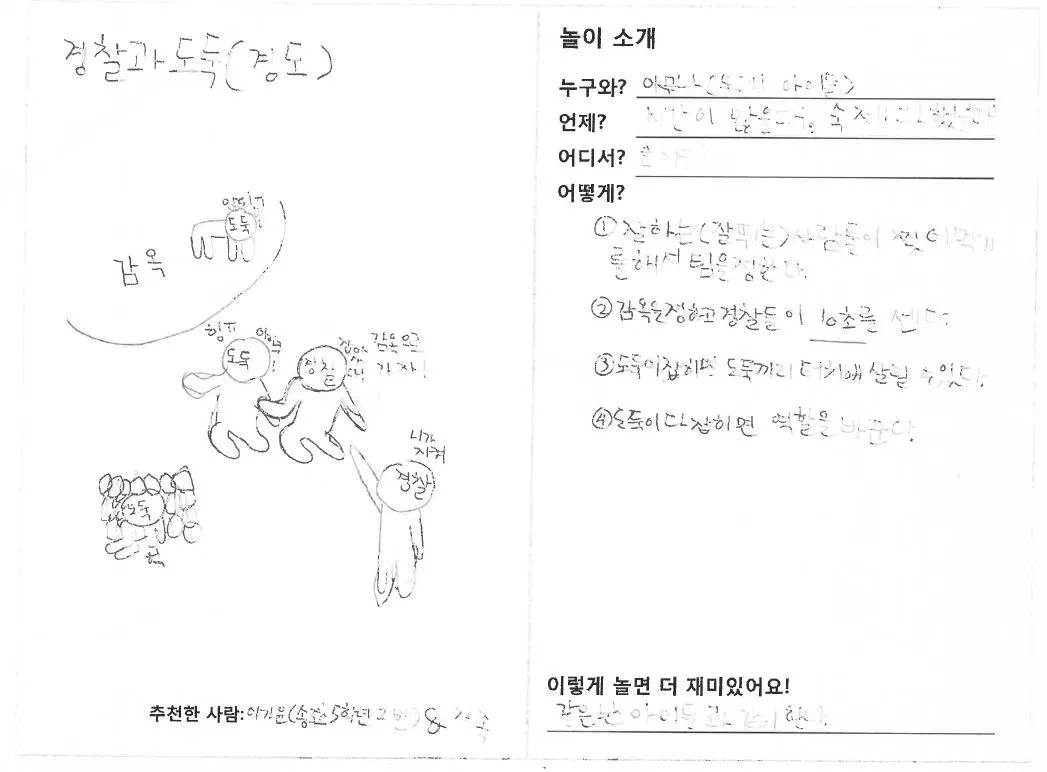 경찰과 도둑(경도)
도둑
감옥
도둑
경찰
감옥으로
가자!
니가
지켜
경찰
도둑
추천한 사람: (송전 5학년 2반) &
놀이 소개
누구와? 아무나( 아이들)
언제? 시간이 많은 때, 숙제 다 했을때
어디서?
어떻게?
① 잘하는(잘뛰는)사람들이 찢어먹기
를 해서 팀을정한다.
② 감옥을정하고 경찰들이 10초를 센다.
③ 도둑이잡히면 도둑끼리 터치해 살릴 수있다.
④ 도둑이다잡히면 역할을 바꾼다.
이렇게 놀면 더 재미있어요!
같은반 아이들과 같이 한다.